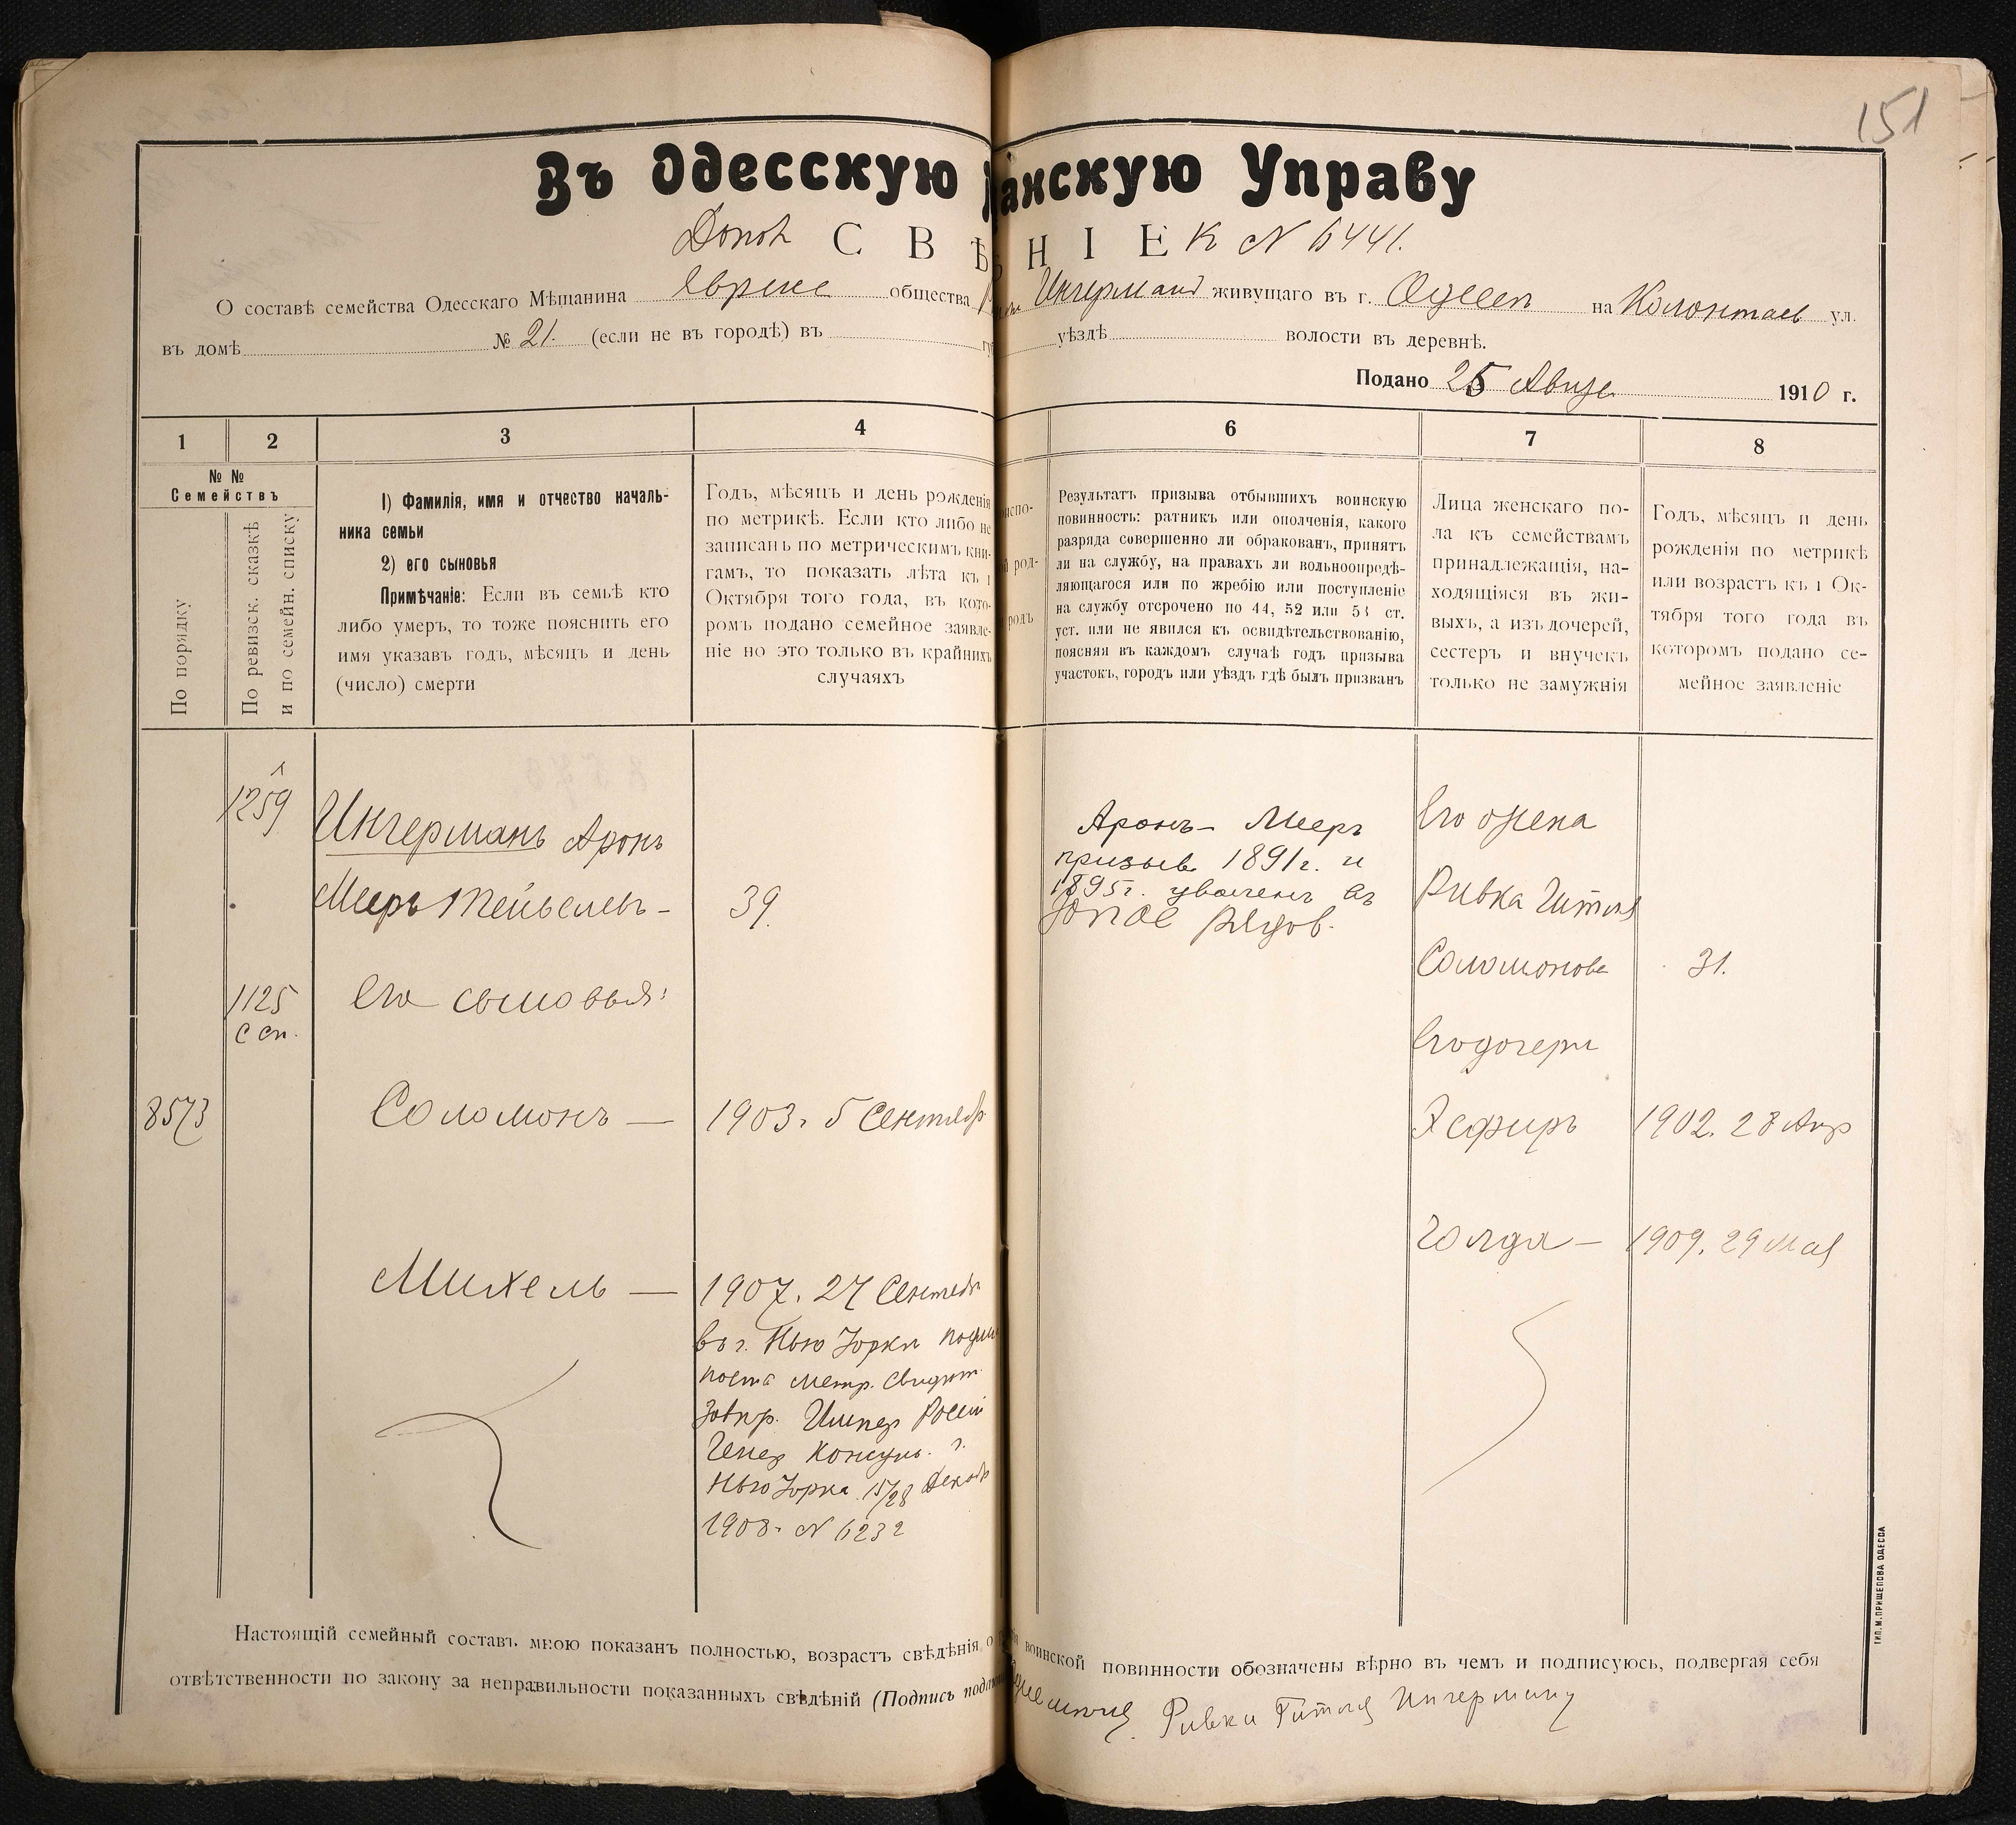 151
Въ Одесскую анскую Управу
Допол СВѢ НІЕ к N 6441.
О составѣ семейства Одесскаго Мѣщанина Еврейс общества Ингерман живущаго въ г. Одессѣ на Колонтаев ул.
въ домѣ № 21. (если не въ городѣ) въ уѣздѣ волости въ деревнѣ.
Подано 25 Авгус 1910 г.
1 2 3 4 6 7 8
№ №
Семействъ
По порядку
По ревизск. сказкѣ
и по семейн. списку
1) Фамилія, имя и отчество началь-
ника семьи
2) его сыновья
Примѣчаніе: Если въ семьѣ кто
либо умеръ, то тоже пояснить его
имя указавъ годъ, мѣсяцъ и день
(число) смерти
Годъ, мѣсяцъ и день рожденія
по метрикѣ. Если кто либо не
записанъ по метрическимъ кни-
гамъ, то показать лѣта къ 1
Октября того года, въ кото-
ромъ подано семейное заявле-
ніе но это только въ крайнихъ
случаяхъ
испо-
род-
родъ
Результатъ призыва отбывшихъ воинскую
повинность: ратникъ или ополченія, какого
разряда совершенно ли обракованъ, принятъ
ли на службу, на правахъ ли вольноопредѣ-
ляющагося или по жребію или поступленіе
на службу отсрочено по 44, 52 или 53 ст.
уст. или не явился къ освидѣтельствованію,
поясняя въ каждомъ случаѣ годъ призыва
участокъ, городъ или уѣздъ гдѣ былъ призванъ
Лица женскаго по-
ла къ семействамъ
принадлежащія, на-
ходящіяся въ жи-
выхъ, а изъ дочерей,
сестеръ и внучекъ
только не замужнія
Годъ, мѣсяцъ и день
рожденія по метрикѣ
или возрастъ къ 1 Ок-
тября того года въ
которомъ подано се-
мейное заявленіе
1259
Ингерманъ Аронъ
Мееръ Тейвелевъ — 39.
1125
с сп.
Его сыновья:
8573
Соломонъ — 1903. 5 Сентябр
Михель — 1907. 27 Сентяб
въ г. Нью Іорки
метр. свидѣт.
Импер Россій
Генер Консул. г.
Нью Іорка 15/28 Декаб
1908. N 6232
Аронъ — Мееръ
призыв 1891 г. и
1895 г. въ
Его жена
Ривка Гитля
Соломонова 31.
Его дочери
Эсфирь 1902. 28 Апр
Голда — 1909. 29 Мая
Настоящій семейный составъ мною показанъ полностью, возрастъ свѣдѣнія о воинской повинности обозначены вѣрно въ чемъ и подписуюсь, подвергая себя
отвѣтственности по закону за неправильности показанныхъ свѣдѣній (Подпись Ривки Гитля Ингерману
ТИП. М. ПРИЩЕПОВА ОДЕССА